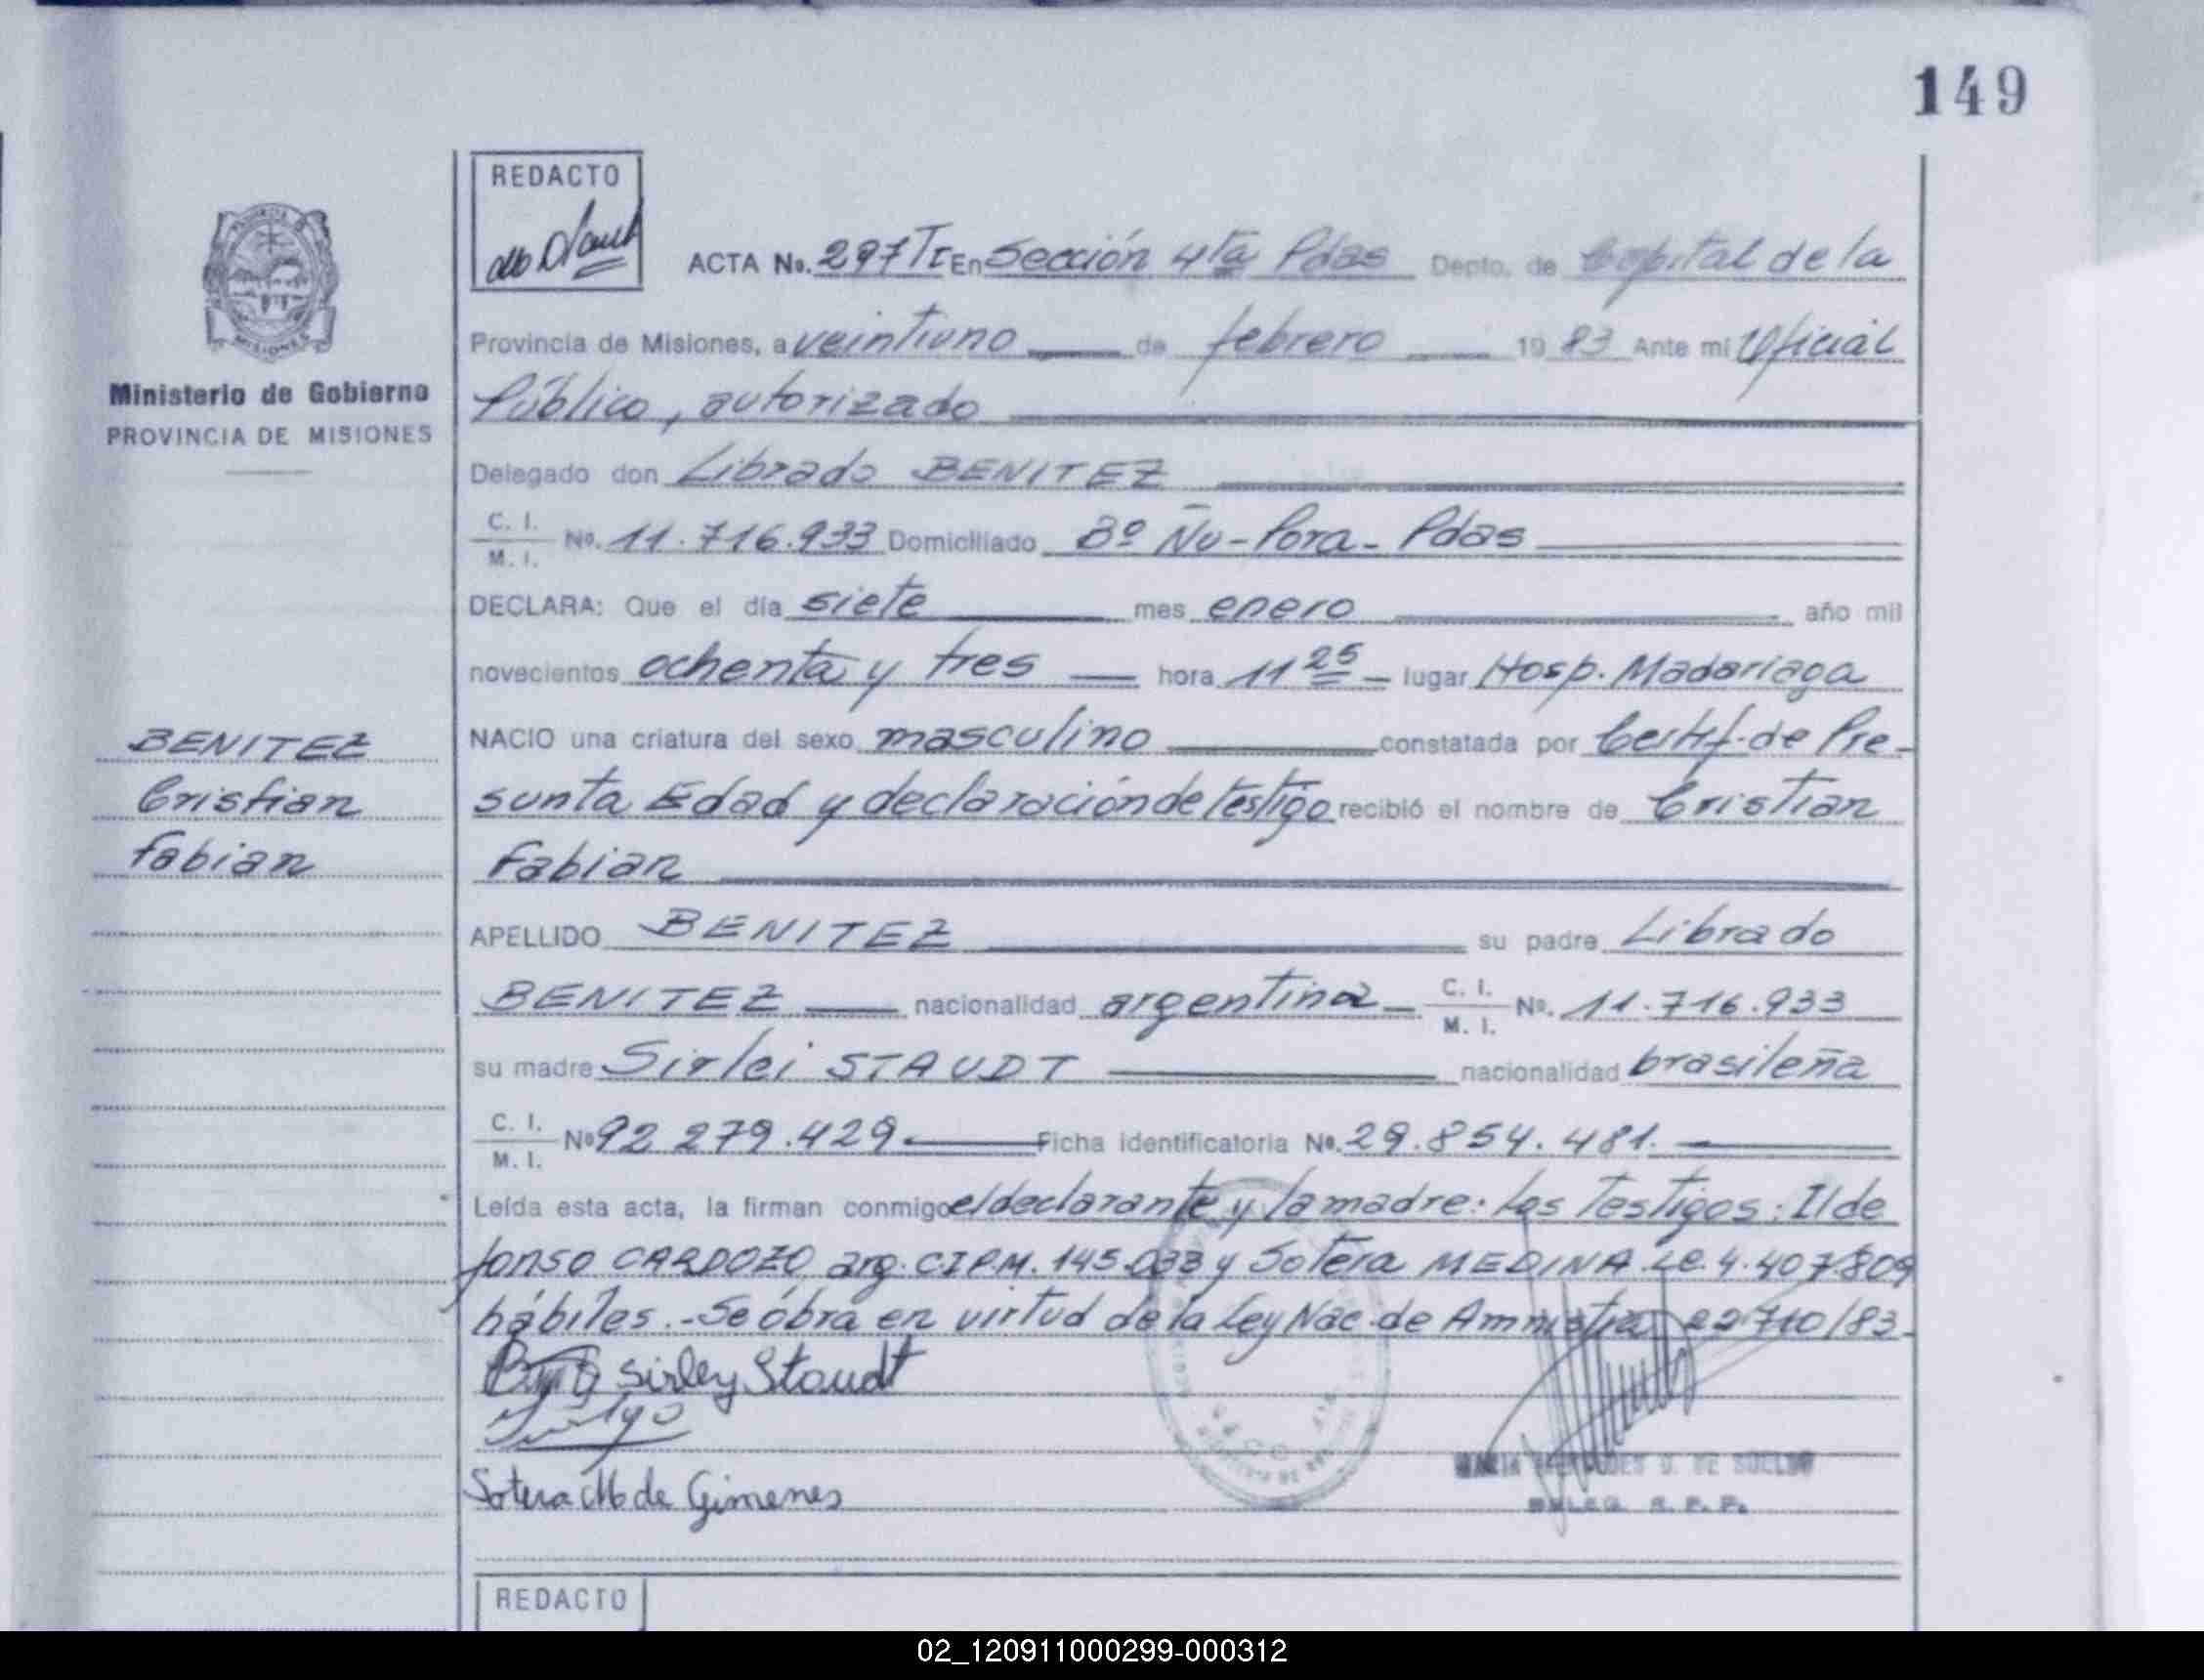 149
REDACTO
ACTA No. 297 TI En Sección 4ta Pdas Depto. de Capital de la
Provincia de Misiones, a veintiuno de febrero 1983 Ante mi Oficial
Público, autorizado
Delegado don Librado BENITEZ
C. I.
M. I. No. 11.716.933 Domiciliado Bº Ñu-Pora- Pdas
DECLARA: Que el día siete mes enero año mil
novecientos ochenta y tres hora 11 25 lugar Hosp. Madariaga
NACIO una criatura del sexo masculino constatada por Certif. de Pre-
sunta Edad y declaración de testigo recibió el nombre de Cristian
Fabian
APELLIDO BENITEZ su padre Librado
BENITEZ nacionalidad argentina C. I. M. I. No. 11.716.933
su madre Sirlei STAUDT nacionalidad brasileña
C. I. M. I. No 92 279.429 Ficha identificatoria No. 29.854.481.
Leída esta acta, la firman conmigo el declarante y la madre: Los Testigos: Ilde
fonso CARDOZO, arg. CIPM. 145.033 y Sotera MEDINA LC. 4.407.809
hábiles.-Se obra en virtud de la Ley Nac. de Amnistia 22710/83-
Sirley Staudt
Sotera M de Gimenes
DELEG. R. P. P.
REDACTO
MISIONES
Ministerio de Gobierno
PROVINCIA DE MISIONES
BENITEZ
Cristian
Fabian
02_120911000299-000312